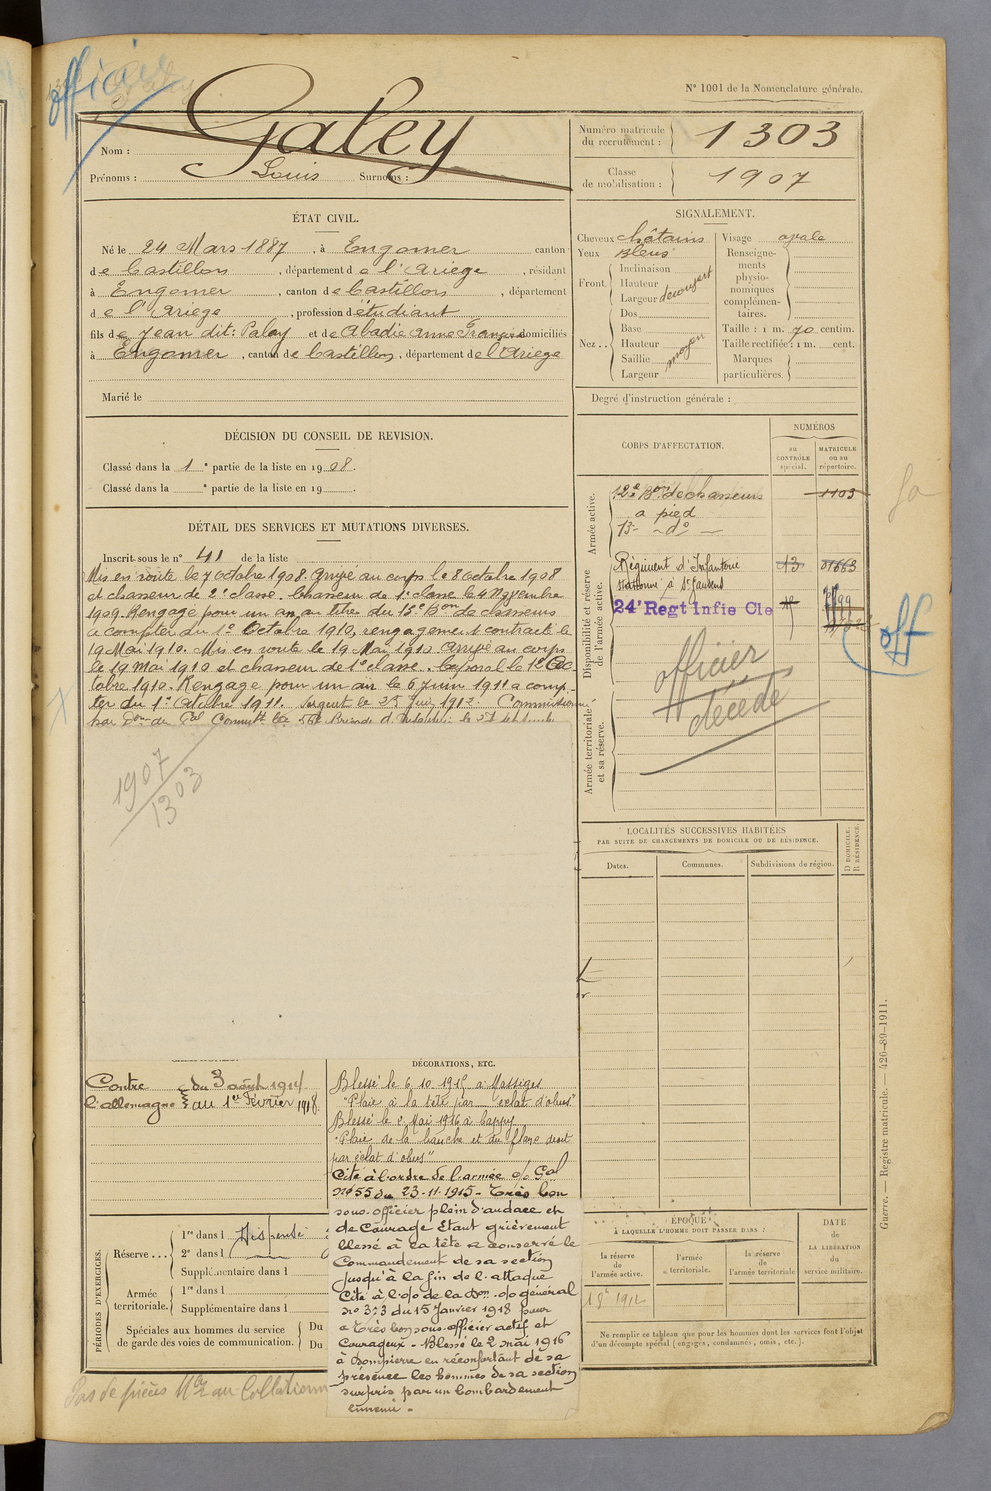 officier
N° 1001 de la Nomenclature générale.
Nom : Galey
Prénoms : Louis Surnoms :
Numéro matricule du recrutement : 1303
Classe de mobilisation : 1907
ÉTAT CIVIL.
Né le 24 Mars 1887, à Engomer canton
de Castillon, département de l'Ariege, résidant
à Engomer, canton de Castillon, département
de l'Ariege, profession d'étudiant
fils de Jean dit: Palay et de Abadie Anne Françoise domiciliés
à Engomer, canton de Castillon, département de l'Ariege
Marié le
SIGNALEMENT.
Cheveux châtains
Yeux Bleus
Front. Inclinaison
Hauteur
Largeur decouvert
Nez.. Dos
Base
Hauteur
Saillie moyen
Largeur
Visage ovale
Renseigne-
ments
physio-
nomiques
complémen-
taires.
Taille : 1 m. 70 centim.
Taille rectifiée : 1 m. cent.
Marques
particulières.
Degré d'instruction générale :
DÉCISION DU CONSEIL DE REVISION.
Classé dans la 1e partie de la liste en 1908.
Classé dans la e partie de la liste en 19 .
DÉTAIL DES SERVICES ET MUTATIONS DIVERSES.
Inscrit sous le n° 41 de la liste
Mis en route le 7 octobre 1908. Arrivé au corps le 8 octobre 1908
et chasseur de 2e classe. Chasseur de 1e classe le 4 Novembre
1909. Rengagé pour un an au titre du 13e Bon de chasseurs
a compter du 1er Octobre 1910, rengagement contracté le
19 Mai 1910. Mis en route le 19 Mai 1910. Arrivé au corps
le 19 mai 1910 et chasseur de 1e classe. Caporal le 1er Oc-
tobre 1910. Rengagé pour un an le 6 Juin 1911 a comp-
ter du 1er Octobre 1911. Sergent le 25 Juin 1912. Commissionné
1907
1303
CORPS D'AFFECTATION.
NUMÉROS
au CONTRÔLE spécial.
MATRICULE ou au répertoire.
Armée active.
12e Bon de chasseurs 1103
a pied
13e - do -
Disponibilité et réserve de l'armée active.
Régiment d'Infanterie
stationné à St Gaudens
24e Regt Infie Cle
off
Armée territoriale et sa réserve.
officier
décédé
LOCALITÉS SUCCESSIVES HABITÉES
PAR SUITE DE CHANGEMENTS DE DOMICILE OU DE RÉSIDENCE.
Dates. Communes. Subdivisions de région.
D DOMICILE. R RÉSIDENCE.
Contre du 3 août 1914
l'allemagne au 1er Février 1918.
DÉCORATIONS, ETC.
Blessé le 6.10.1915 à Massiges
"Plaie à la tête par éclat d'obus"
Blessé le 2 Mai 1916 à Cappy
"Plaie de la hanche et du flanc droit
par éclat d'obus"
Cité à l'ordre de l'armée o/o Gal
no 55 du 23-11-1915 - Très bon
sous-officier plein d'audace et
de Courage Etant grièvement
blessé à la tête a conservé le
Commandement de sa section
jusqu'à la fin de l'attaque
Cité à l'o/o de la Don. o/o général
no 373 du 15 Janvier 1918 pour
"Très bon sous-officier actif et
Courageux - Blessé le 2 mai 1916
à Dompierre en réconfortant de sa
présence les hommes de sa section
surpris par un bombardement
ennemi.
PÉRIODES D'EXERCICES.
Réserve... 1re dans l Dispensé
2e dans l
Supplémentaire dans l
Armée territoriale. 1re dans l
Supplémentaire dans l
Spéciales aux hommes du service
de garde des voies de communication. Du
Du
ÉPOQUE
À LAQUELLE L'HOMME DOIT PASSER DANS :
la réserve de l'armée active.
l'armée territoriale.
la réserve de l'armée territoriale
DATE
DE
LA LIBÉRATION
du
service militaire.
1 8e 1912
Ne remplir ce tableau que pour les hommes dont les services font l'objet
d'un décompte spécial (engagés, condamnés, omis, etc.).
Guerre. — Registre matricule. — 426-89-1911.